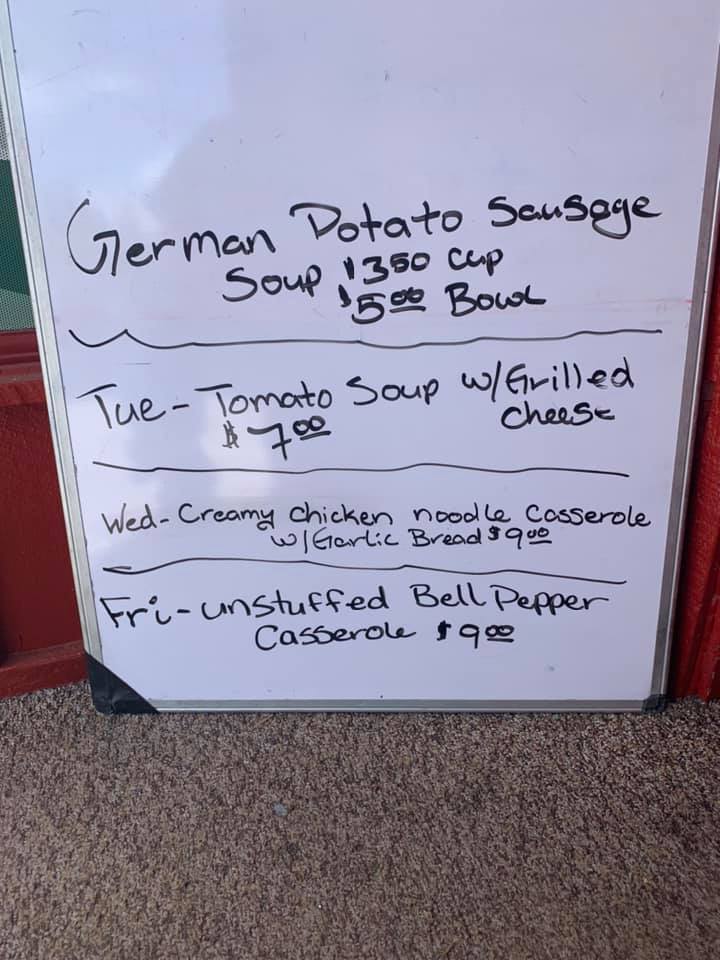 German Potato Sausage
Soup $350 cup
$5.00 Bowl
Tue - Tomato Soup w/Grilled
cheese
$7.00
Wed - Creamy chicken noodle Casserole
w/Garlic Bread $9.00
Fri - unstuffed Bell Pepper
Casserole $9.00